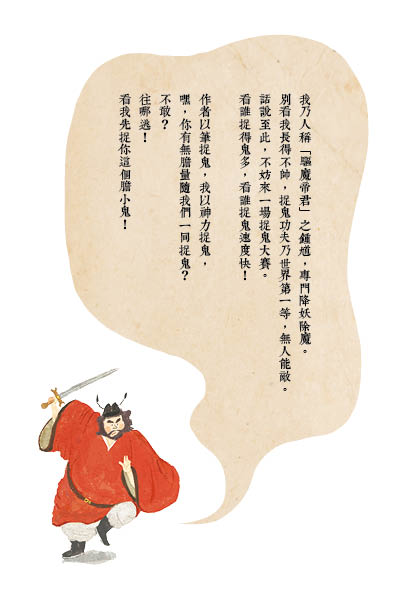 我乃人稱「驅魔帝君」之鍾馗，專門降妖除魔。
別看我長得不帥，捉鬼功夫乃世界第一等，無人能敵。
話說至此，不妨來一場捉鬼大賽。
看誰捉得鬼多，看誰捉鬼速度快！
作者以筆捉鬼，我以神力捉鬼，
嘿，你有無膽量隨我們一同捉鬼？
不敢？
往哪逃！
看我先捉你這個膽小鬼！